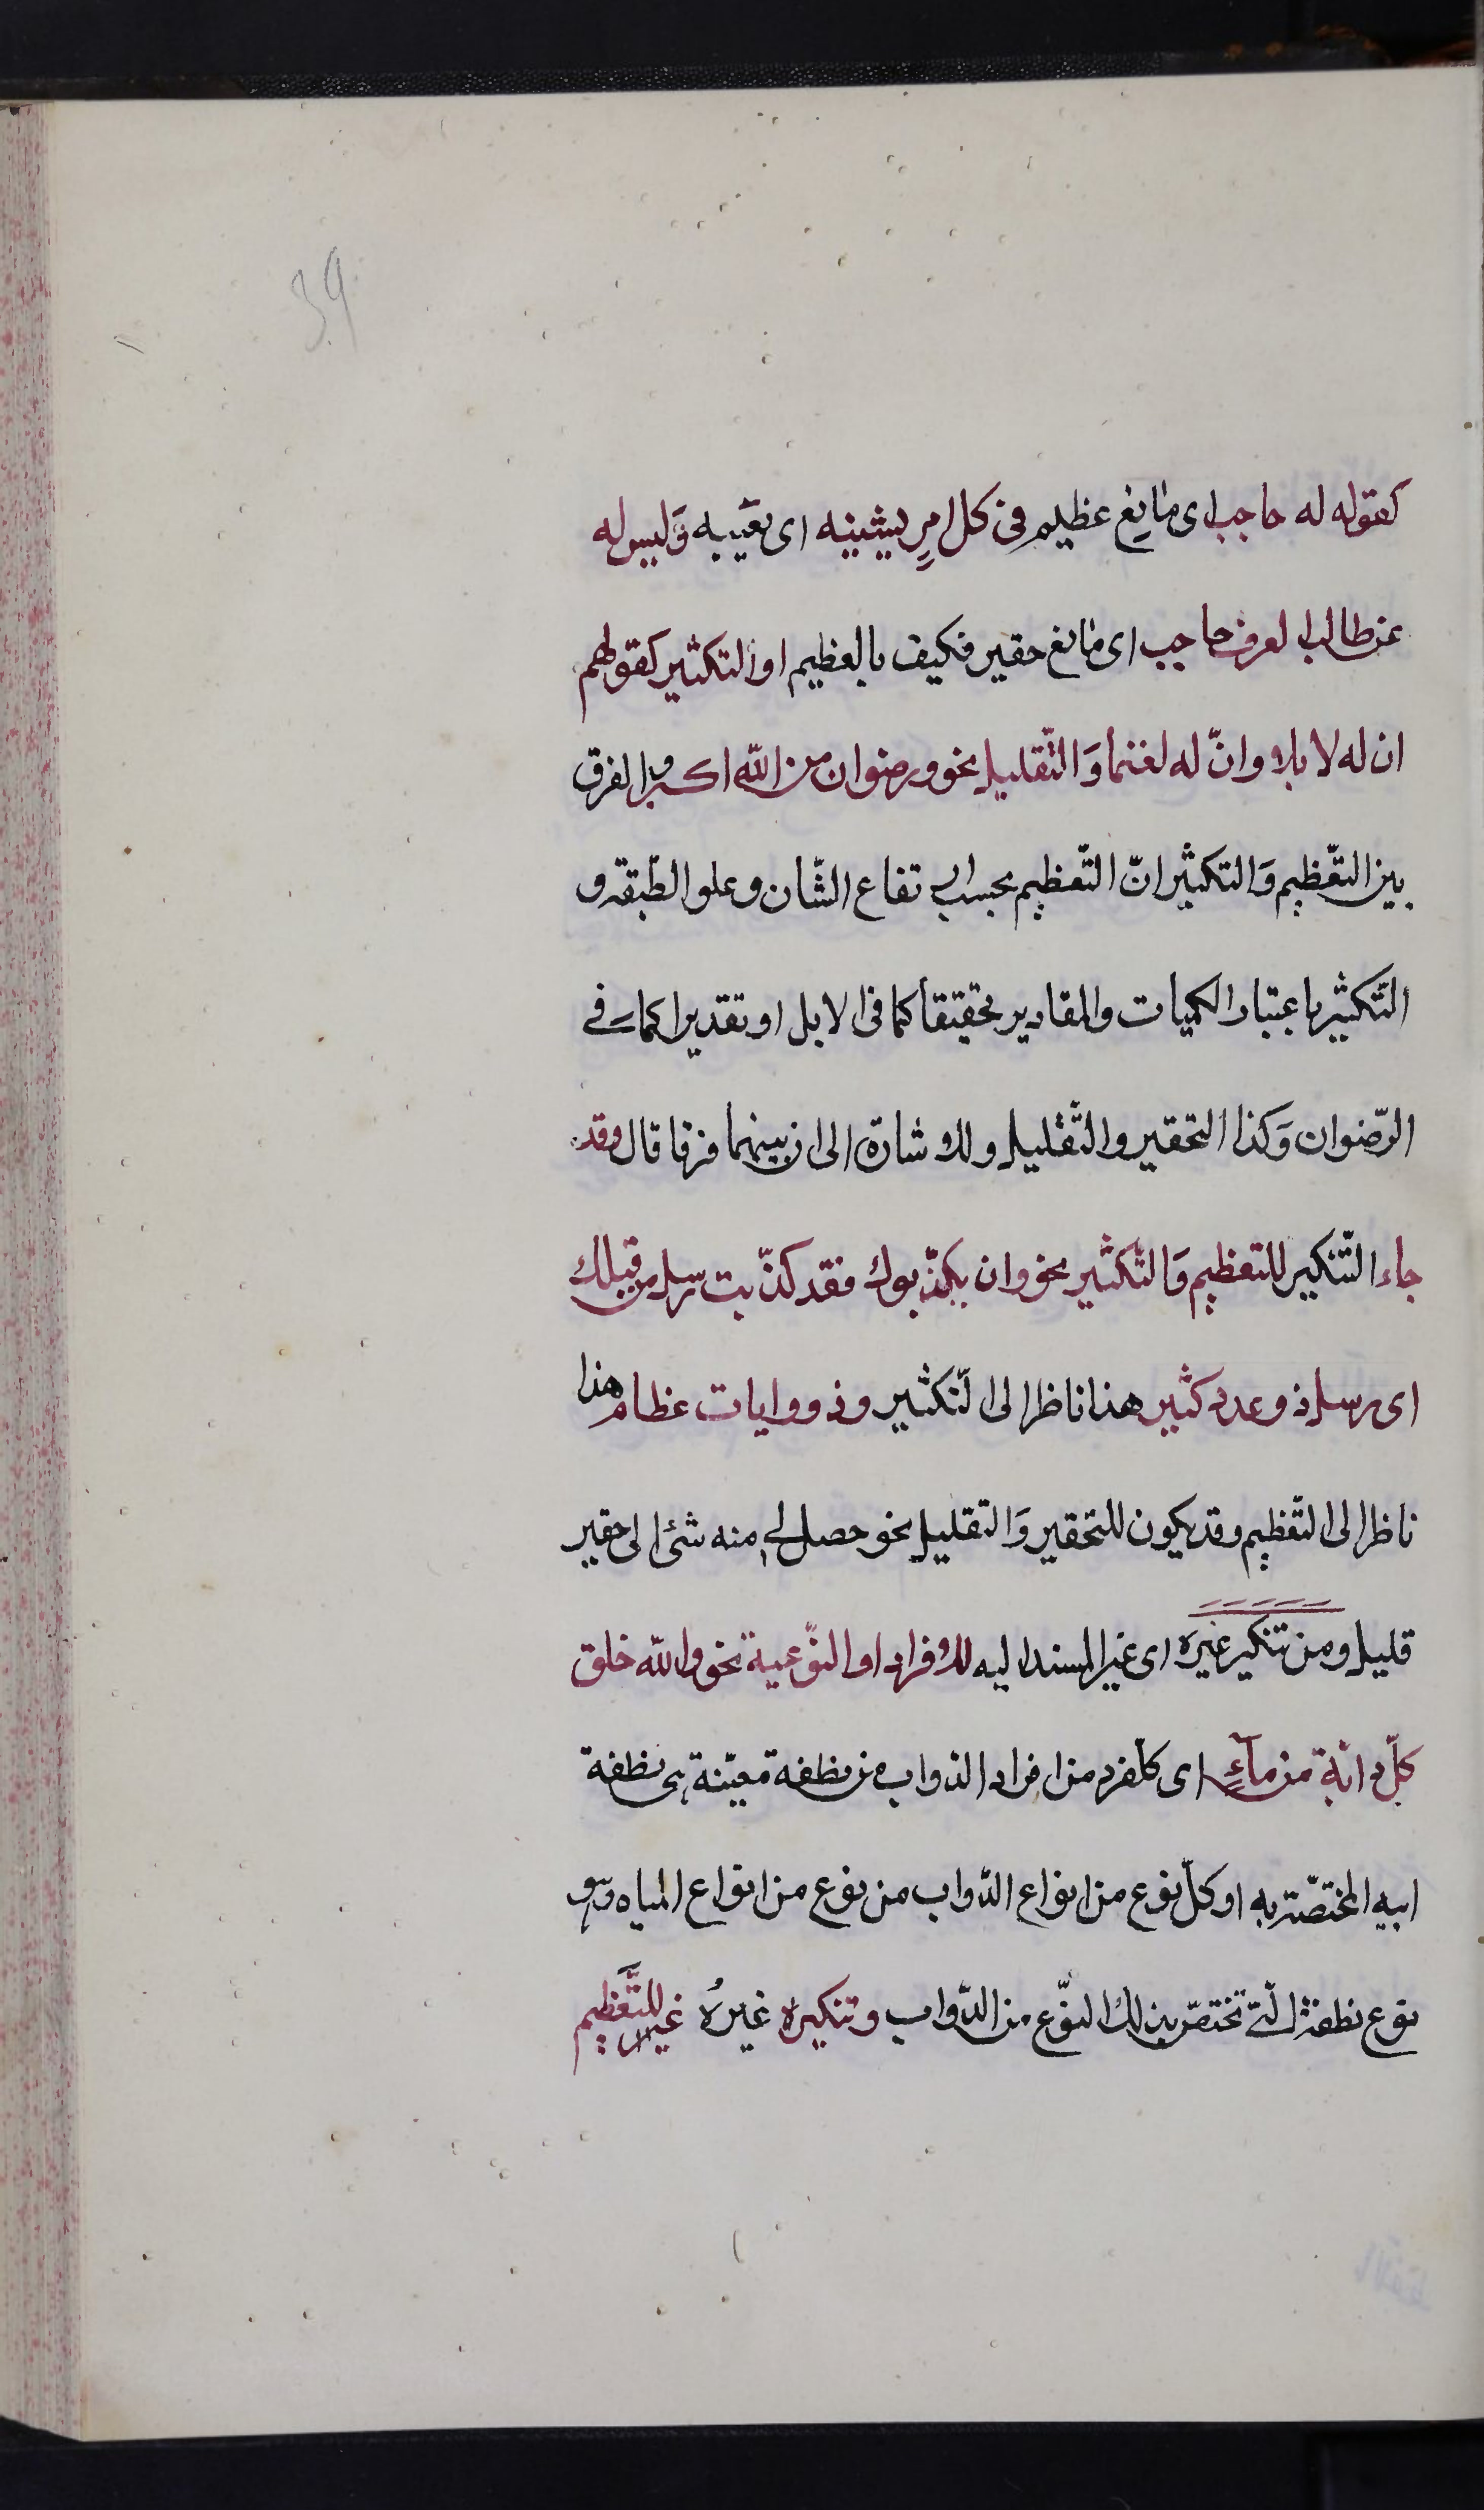 39
كقوله له حاجب اى مانع عظيم فى كل امرٍ يشينه اى يعيبه وَليس له
عن طالب العرف حاجب اى مانع حقير فكيف بالعظيم او التكثير كقولهم
ان له لابلا وانّ له لغنما وَالتّقليل نحو ورضوان من الله اكبر والفرق
بين التّعظيم وَالتكثير انّ التّعظيم بحسب ارتفاع الشّان وعلو الطّبقة و
التّكثير باعتبار الكميات والمقادير تحقيقاً كما فى الابل او تقديرا كما فے
الرّضوان وَكذا التحقير والتّقليل وللاشارة الى ان بينهما فرقا قال وقد
جاء التّنكير للتعظيم وَالتّكثير نحو وان يكذّبوك فقد كذّبت رسل من قبلك
اى رسل ذو عدد كثير هذا ناظر الى التّكثير وذووايات عظام هذا
ناظر الى التّعظيم وقد يكون للتحقير وَالتقليل نحو حصل لے منه شئ اى حقير
قليل ومن تنكير غيره اى غير المسند اليه للافراد او النّوعية نحو والله خلق
كلّ دابّة من مآءٍ اى كل فرد من افراد الدواب من نطفة معيّنة هى نطفة
ابيه المختصّة به او كلّ نوع من انواع الدّواب من نوع من انواع المياه وهو
نوع نطفة الّتے تختصّ بذلك النّوع من الدّواب وتنكيره غيرهُ غير للتّعظيم